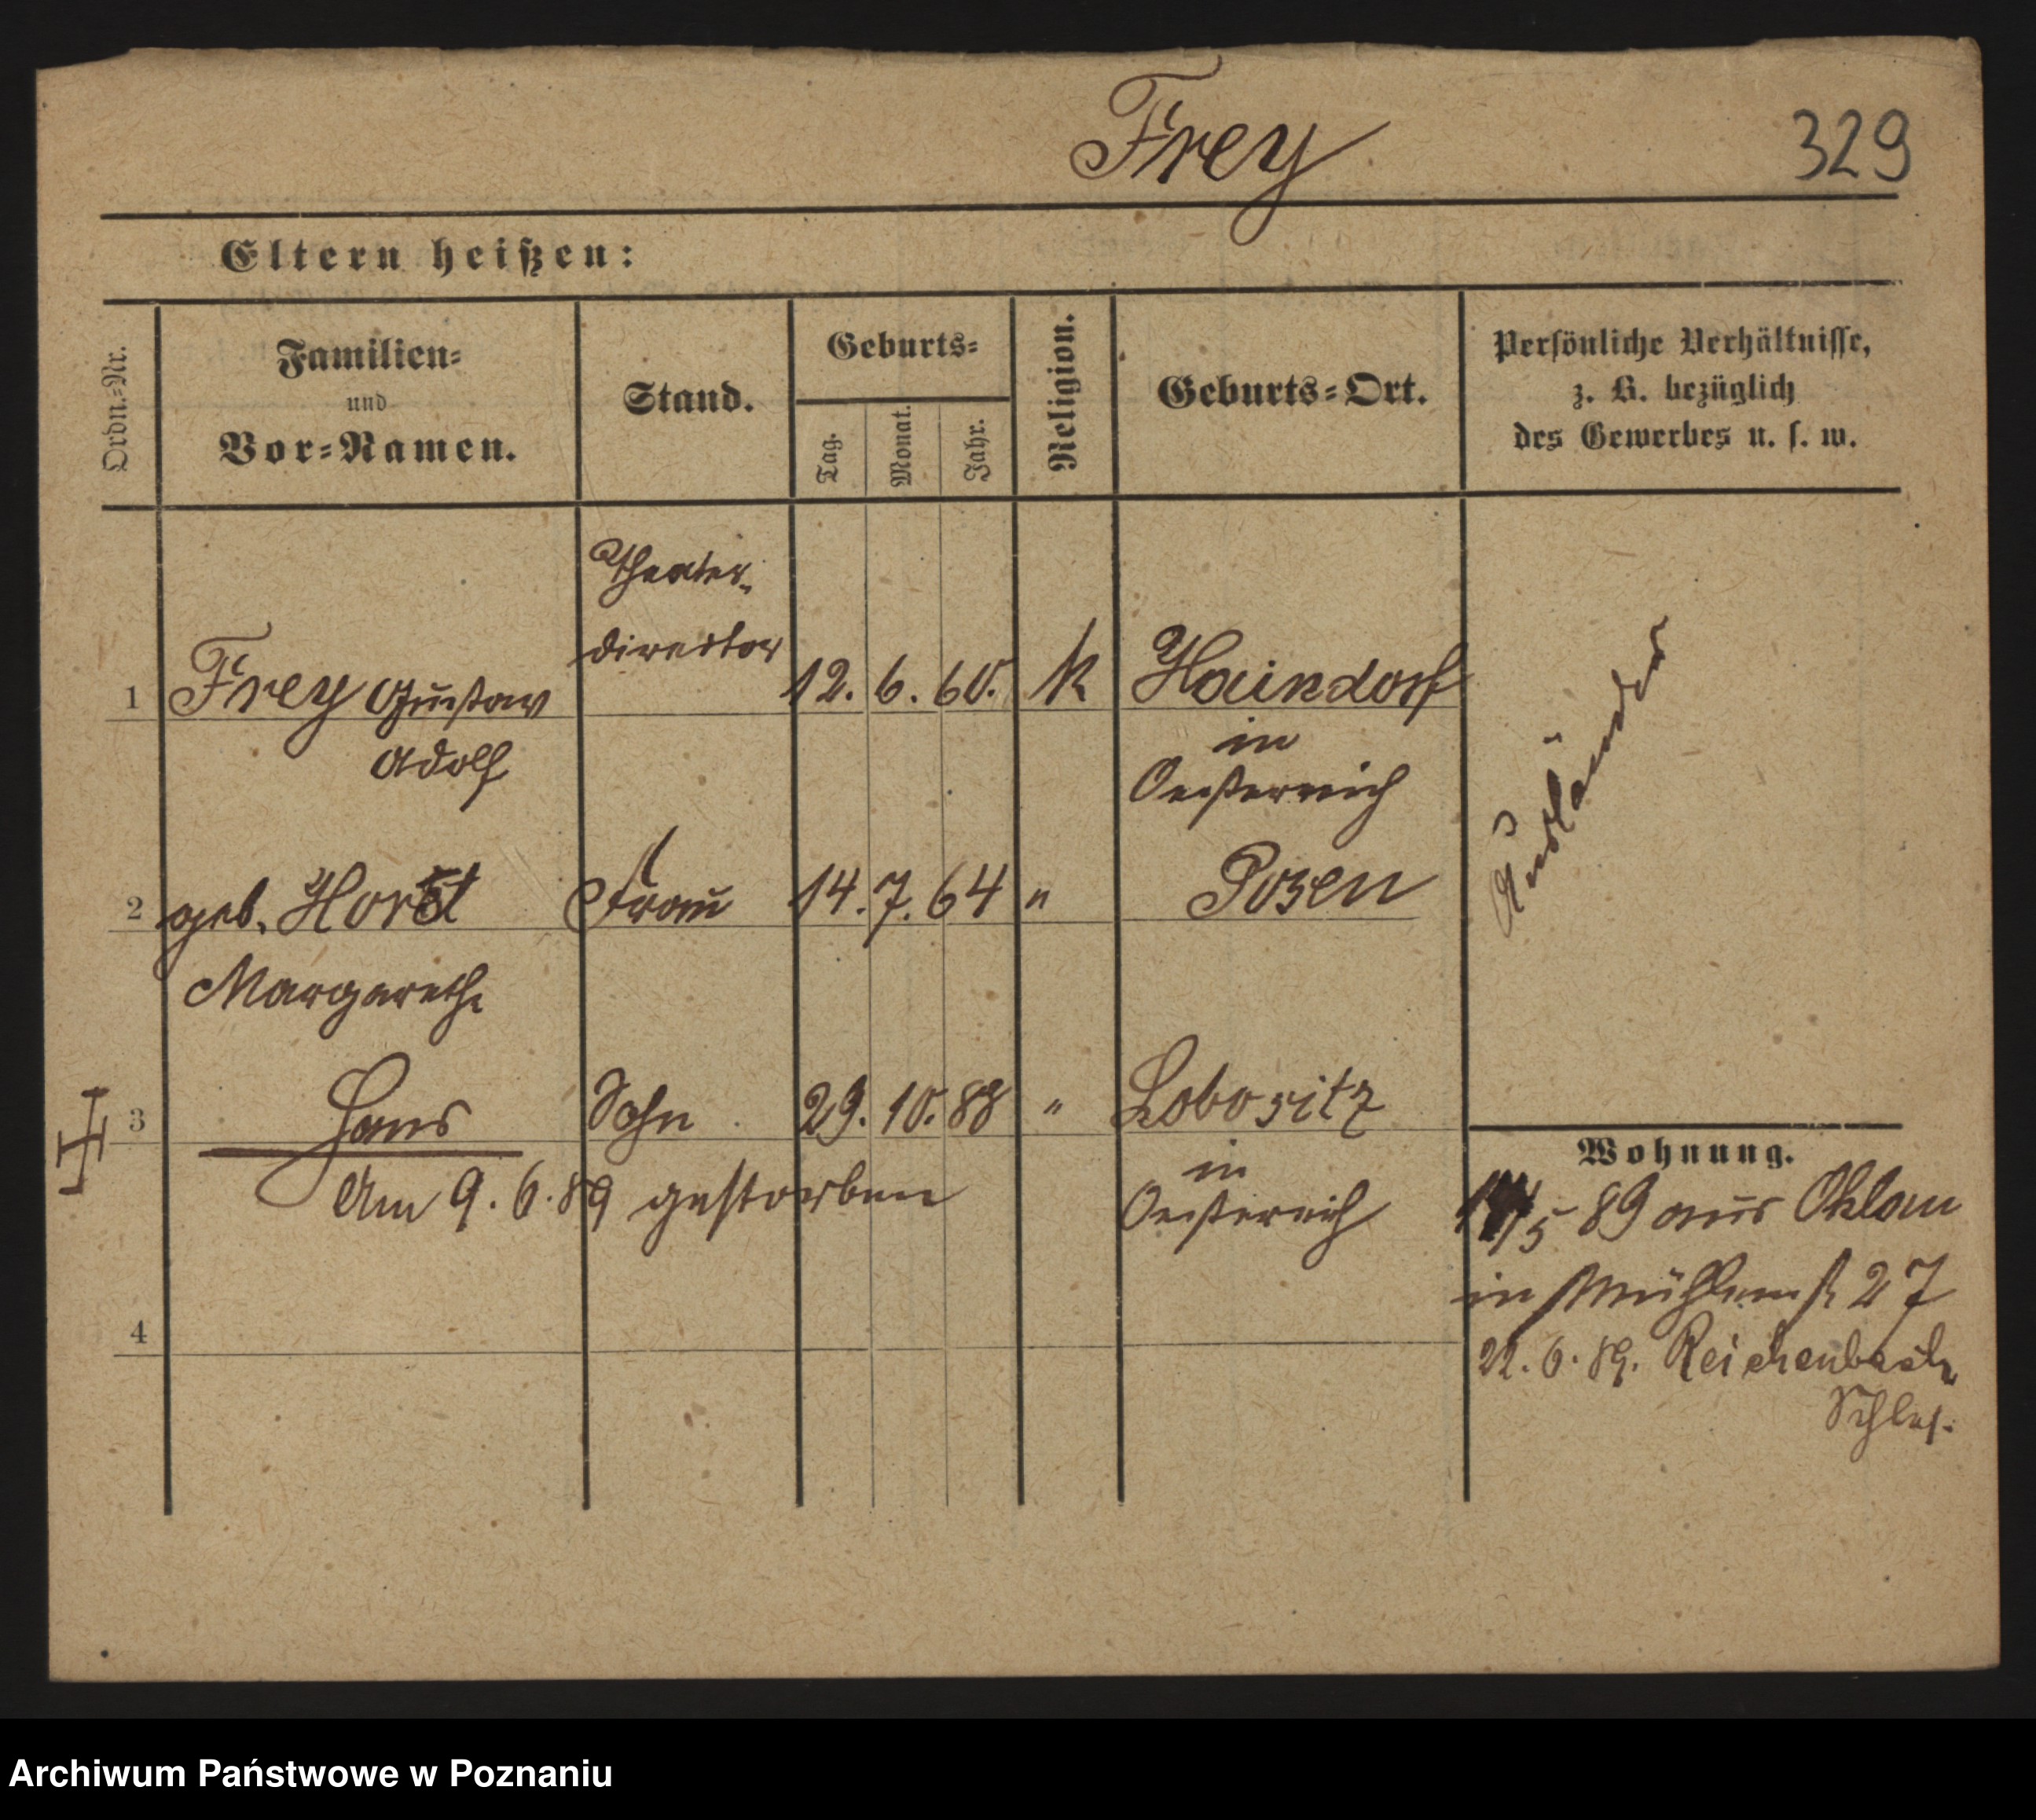 Frey
329
Eltern heißen:
Ordn.-Nr.
Familien- und Vor-Namen.
Stand.
Geburts-
Tag.
Monat.
Jahr.
Religion.
Geburts-Ort.
Persönliche Verhältnisse,
z. B. bezüglich
des Gewerbes u. s. w.
Theater-
director
1 Frey Gustav 12. 6. 60. K Haindorf
Adolf
in
Oesterreich
Ausländer
2 geb. Horst Frau 14. 7. 64 " Posen
Margarethe
3 Hans Sohn 29. 10. 88 " Lobositz
in
Oesterreich
Am 9. 6. 89 gestorben
4
Wohnung.
/5 89 aus Ohlau
in Mühlenst 27
22. 6. 89. Reichenbach
Schles.
Archiwum Państwowe w Poznaniu